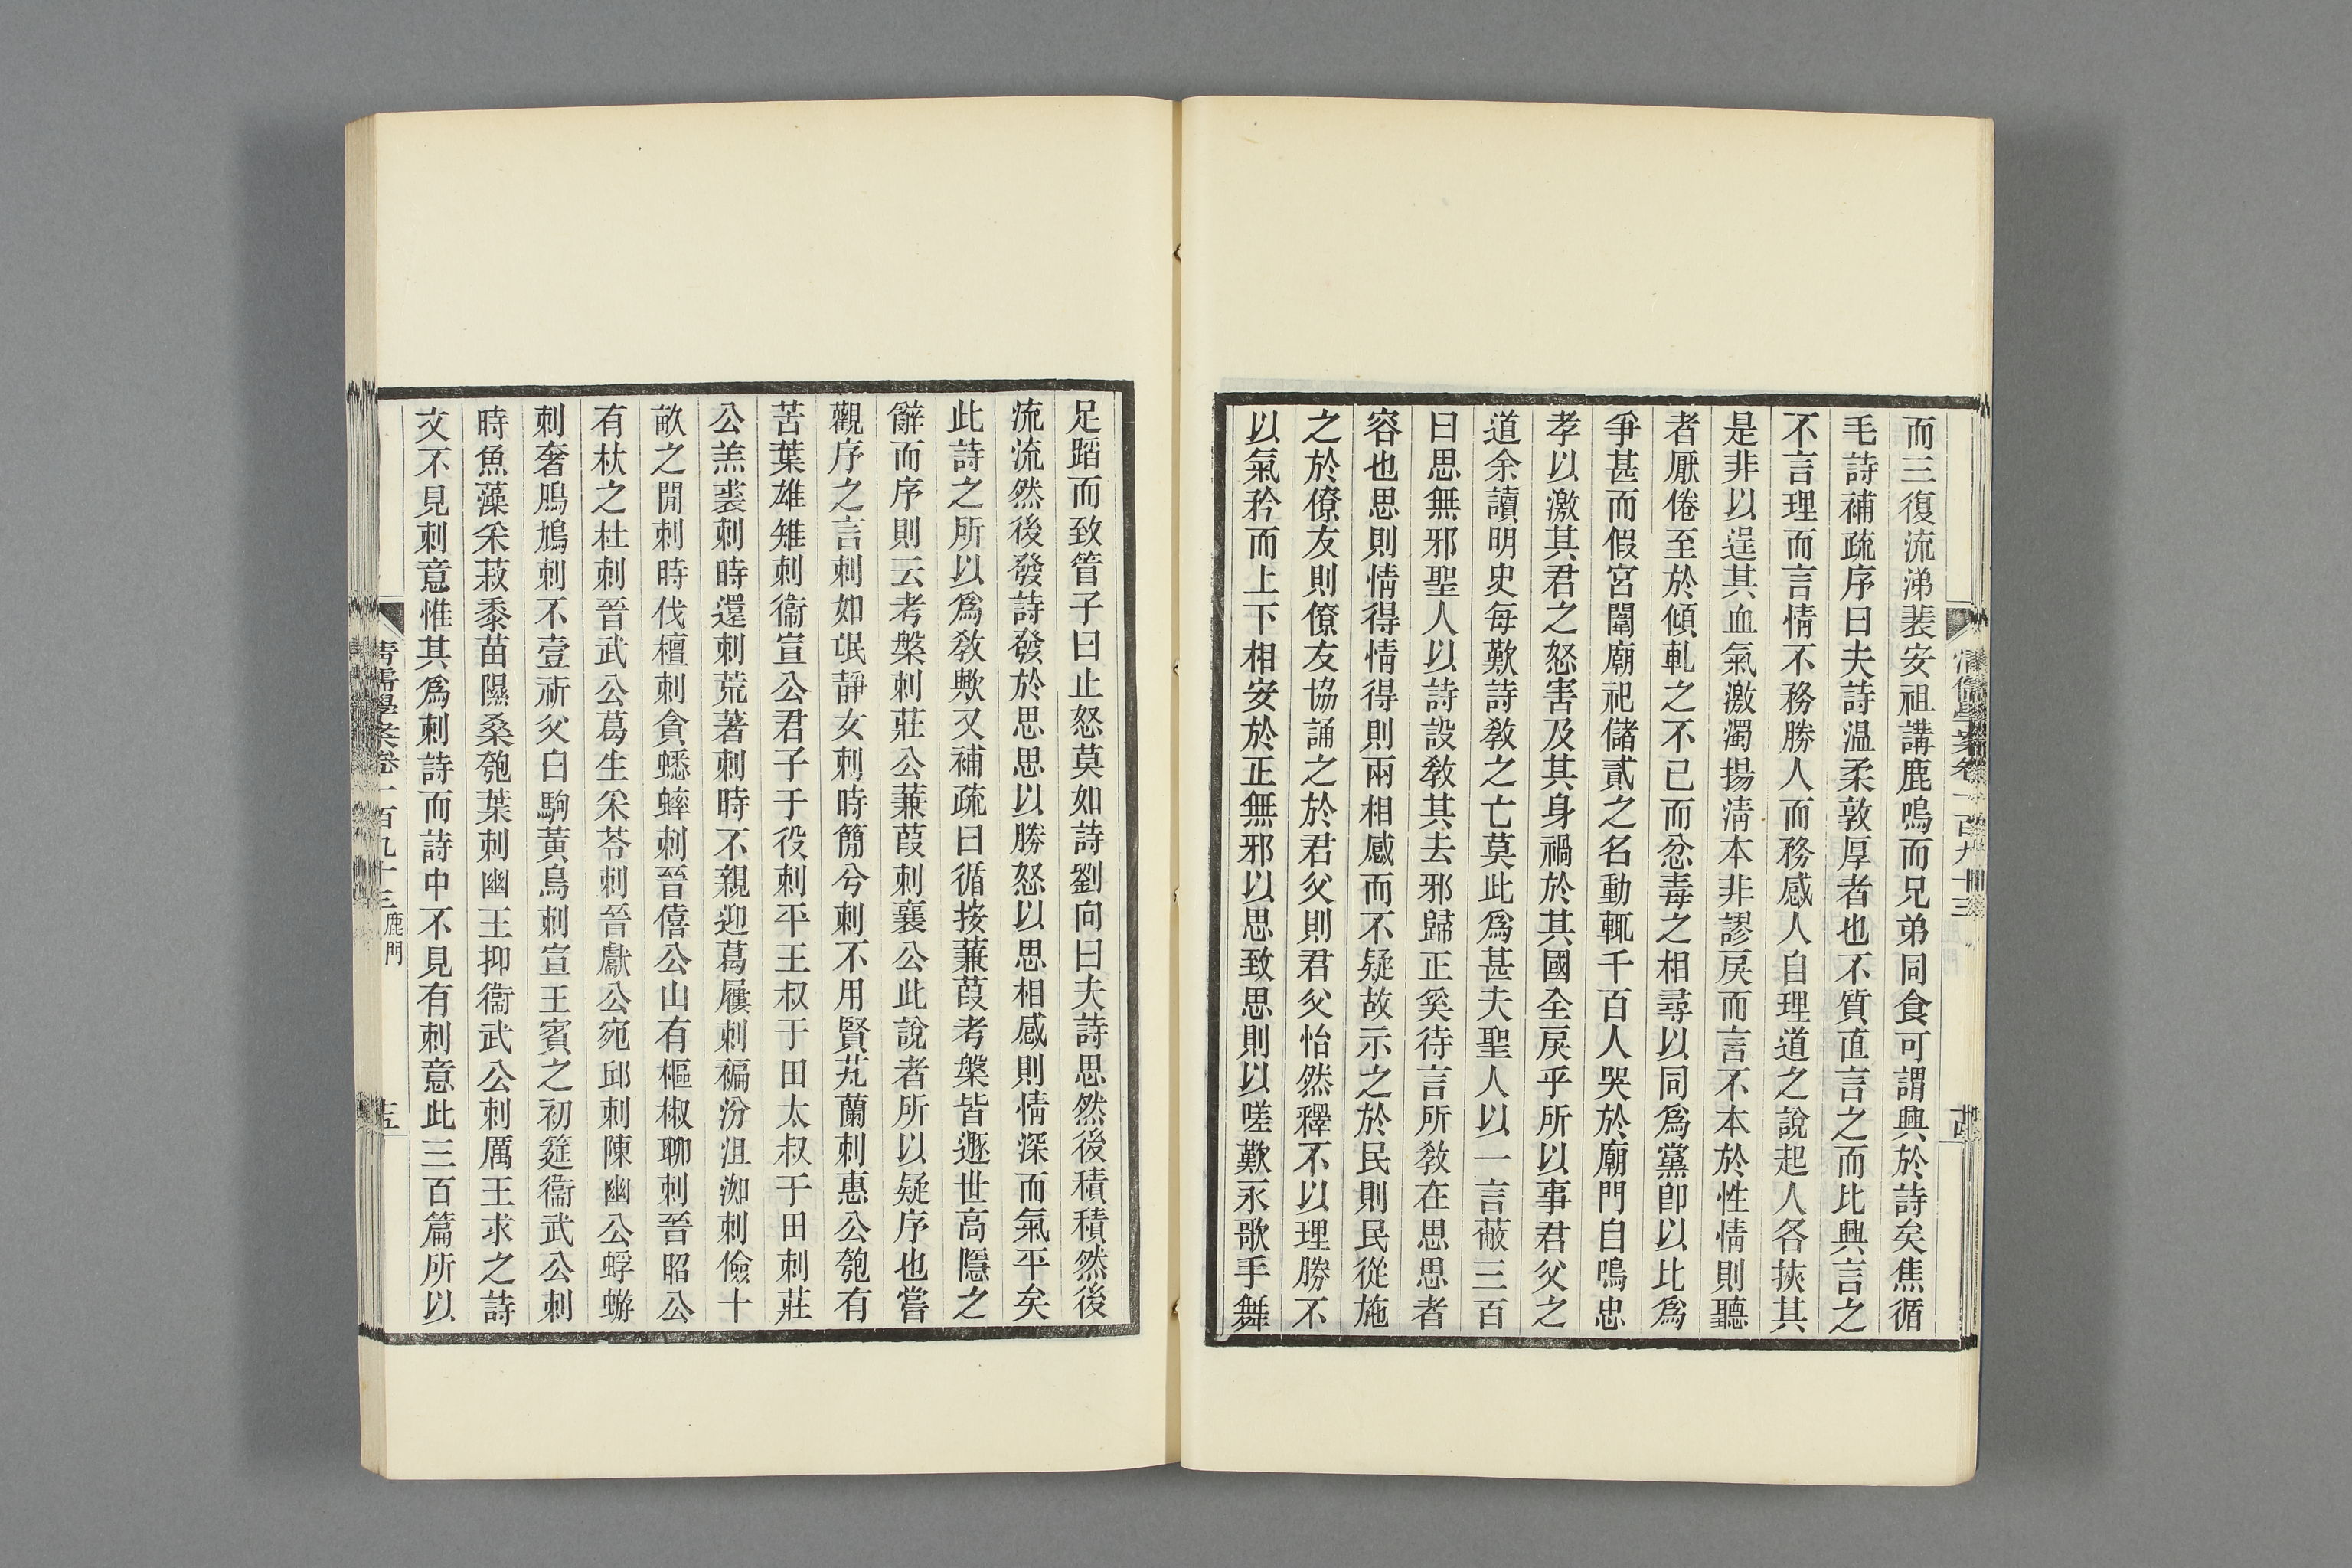 而三復流涕裴安祖講鹿鳴而兄弟同食可謂興於詩矣焦循
毛詩補疏序曰夫詩温柔敦厚者也不質直言之而比興言之
不言理而言情不務勝人而務感人自理道之說起人各挾其
是非以逞其血氣激濁揚淸本非謬戾而言不本於性情則聽
者厭倦至於傾軋之不已而忿毒之相尋以同爲黨卽以比爲
爭甚而假宮闈廟祀儲貳之名動輒千百人哭於廟門自鳴忠
孝以激其君之怒害及其身禍於其國全戾乎所以事君父之
道余讀明史每歎詩敎之亡莫此爲甚夫聖人以一言蔽三百
曰思無邪聖人以詩設敎其去邪歸正奚待言所敎在思思者
容也思則情得情得則兩相感而不疑故示之於民則民從施
之於僚友則僚友協誦之於君父則君父怡然釋不以理勝不
以氣矜而上下相安於正無邪以思致思則以嗟歎永歌手舞
清儒學案卷一百九十三
十四
足蹈而致管子曰止怒莫如詩劉向曰夫詩思然後積積然後
流流然後發詩發於思思以勝怒以思相感則情深而氣平矣
此詩之所以爲敎歟又補疏曰循按蒹葭考槃皆遯世高隱之
辭而序則云考槃刺莊公蒹葭刺襄公此說者所以疑序也嘗
觀序之言刺如氓靜女刺時簡兮刺不用賢芄蘭刺惠公匏有
苦葉雄雉刺衞宣公君子于役刺平王叔于田太叔于田刺莊
公羔裘刺時還刺荒著刺時不親迎葛屨刺褊汾沮洳刺儉十
畝之閒刺時伐檀刺貪蟋蟀刺晉僖公山有樞椒聊刺晉昭公
有杕之杜刺晉武公葛生采苓刺晉獻公宛邱刺陳幽公蜉蝣
刺奢鳲鳩刺不壹祈父白駒黃鳥刺宣王賓之初筵衞武公刺
時魚藻采菽黍苗隰桑瓠葉刺幽王抑衞武公刺厲王求之詩
文不見刺意惟其爲刺詩而詩中不見有刺意此三百篇所以
清儒學案卷一百九十三 鹿門
十五